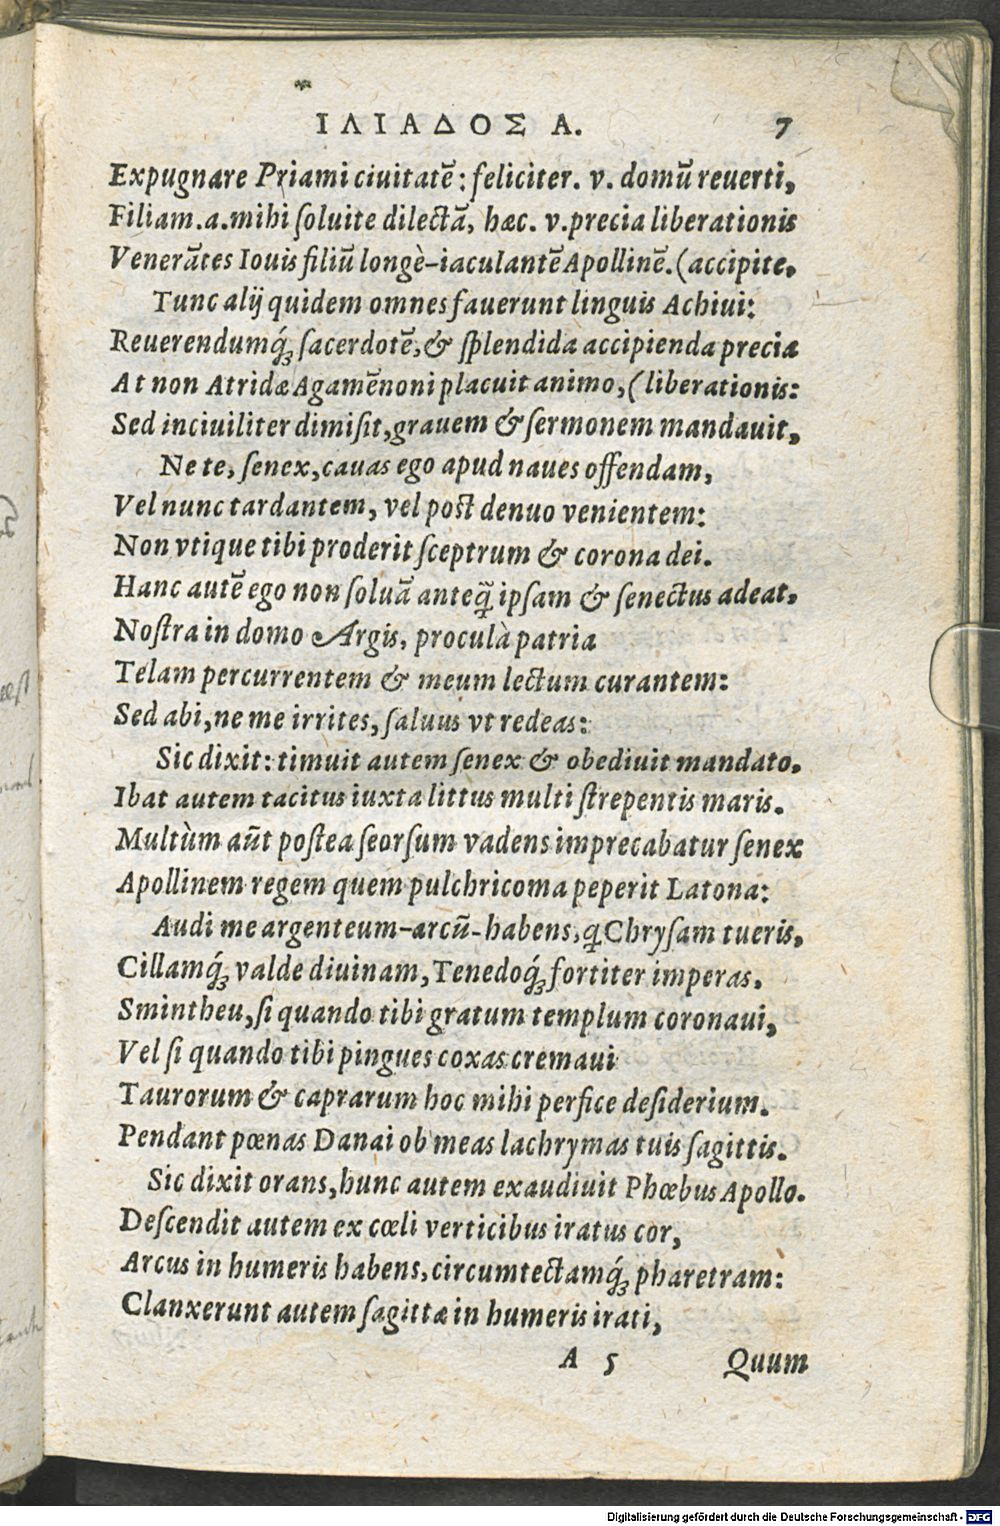 ΙΛΙΑΔΟΣ Α. 7
Expugnare Priami ciuitatē: feliciter. v. domū reuerti,
Filiam.a.mihi ſoluite dilectā, hæc. v. precia liberationis
Venerātes Iouis filiū longè-iaculantē Apollinē. (accipite.
Tunc alij quidem omnes fauerunt linguis Achiui:
Reuerendumq́ꝫ ſacerdotē, & ſplendida accipienda precia
At non Atridæ Agamēnoni placuit animo, (liberationis:
Sed inciuiliter dimiſit, grauem & ſermonem mandauit,
Ne te, ſenex, cauas ego apud naues offendam,
Vel nunc tardantem, vel poſt denuo venientem:
Non vtique tibi proderit ſceptrum & corona dei.
Hanc autē ego non ſoluā anteq̃ ipſam & ſenectus adeat.
Noſtra in domo Argis, procul à patria
Telam percurrentem & meum lectum curantem:
Sed abi, ne me irrites, ſaluus vt redeas:
Sic dixit: timuit autem ſenex & obediuit mandato.
Ibat autem tacitus iuxta littus multi ſtrepentis maris.
Multùm aūt poſtea ſeorſum vadens imprecabatur ſenex
Apollinem regem quem pulchricoma peperit Latona:
Audi me argenteum-arcū-habens, q̃ Chryſam tueris,
Cillamq́ꝫ valde diuinam, Tenedoq́ꝫ fortiter imperas.
Smintheu, ſi quando tibi gratum templum coronaui,
Vel ſi quando tibi pingues coxas cremaui
Taurorum & caprarum hoc mihi perfice deſiderium.
Pendant pœnas Danai ob meas lachrymas tuis ſagittis.
Sic dixit orans, hunc autem exaudiuit Phœbus Apollo.
Deſcendit autem ex cœli verticibus iratus cor,
Arcus in humeris habens, circumtectamq́ꝫ pharetram:
Clanxerunt autem ſagittæ in humeris irati,
A 5 Quum
Digitalisierung gefördert durch die Deutsche Forschungsgemeinschaft - DFG